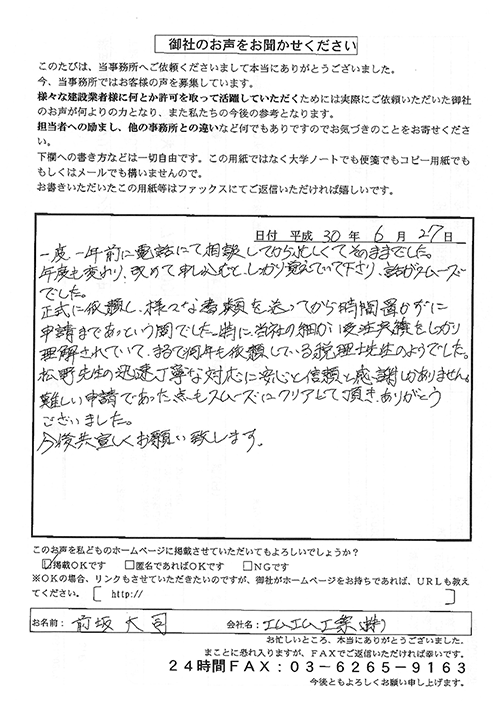 御社のお声をお聞かせください
このたびは、当事務所へご依頼くださいまして本当にありがとうございました。
今、当事務所ではお客様の声を募集しています。
様々な建設業者様に何とか許可を取って活躍していただくためには実際にご依頼いただいた御社
のお声が何よりの力となり、また私たちの今後の参考となります。
担当者への励まし、他の事務所との違いなど何でもありですのでお気づきのことをお寄せくださ
い。
下欄への書き方などは一切自由です。この用紙ではなく大学ノートでも便箋でもコピー用紙でも
もしくはメールでも構いませんので。
お書きいただいたこの用紙等はファックスにてご返信いただければ嬉しいです。
日付 平成 30 年 6 月 27 日
一度一年前に電話にて相談してから忙しくてそのままでした。
年度も変わり、改めて申し込むと、しっかり覚えていて下さり、話がスムーズ
でした。
正式に依頼し、様々な書類を送ってから時間置かずに
申請まであっという間でした。特に、当社の細かい受注実績をしっかり
理解されていて、まるで何年も依頼している税理士先生のようでした。
松野先生の迅速丁寧な対応に安心と信頼と感謝しかありません。
難しい申請であった点もスムーズにクリアして頂き、ありがとう
ございました。
今後共宜しくお願い致します。
このお声を私どものホームページに掲載させていただいてもよろしいでしょうか？
☑掲載OKです □匿名であればOKです □NGです
※OKの場合、リンクもさせていただきたいのですが、御社がホームページをお持ちであれば、URLも教え
てください。 [ http:// ]
お名前： 前坂 大司 会社名： エムエム工業(株)
お忙しいところ、本当にありがとうございました。
まことに恐れ入りますが、FAXでご返信いただければ幸いです。
24時間FAX：03-6265-9163
今後ともよろしくお願い申し上げます。